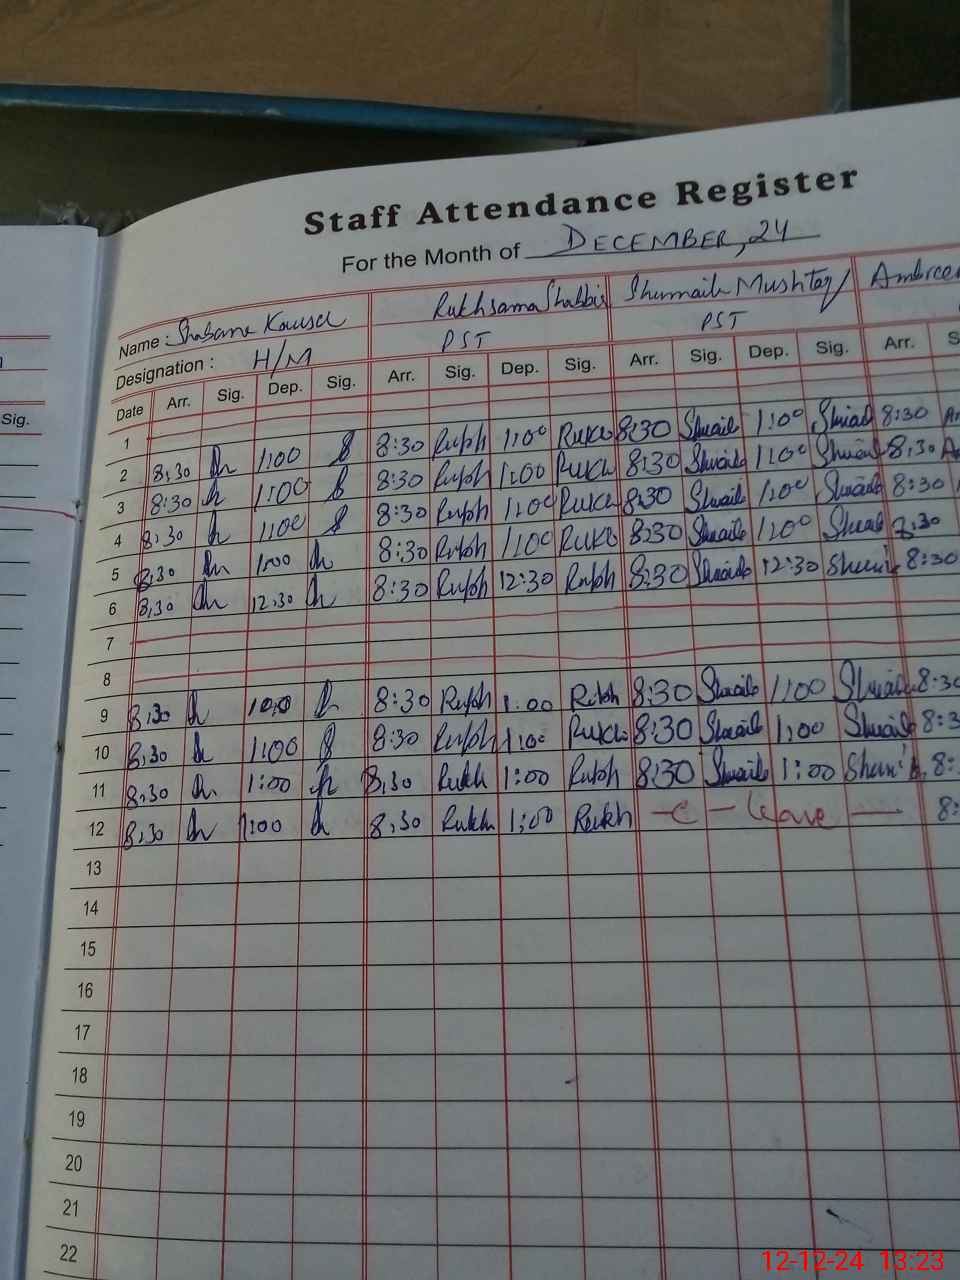 Staff Attendance Register
For the Month of DECEMBER, 24
Name : Shabana Kausar Rukhsama Shabbir Shumaila Mushtaq Ambreen
Designation : H/M PST PST
Sig.
Date Arr. Sig. Dep. Sig. Arr. Sig. Dep. Sig. Arr. Sig. Dep. Sig. Arr. S
1
2 8:30 1:00 8:30 Rukh 1:00 Rukh 8:30 Shumaila 1:00 Shumaila 8:30
3 8:30 1:00 8:30 Rukh 1:00 Rukh 8:30 Shumaila 1:00 Shumaila 8:30
4 8:30 1:00 8:30 Rukh 1:00 Rukh 8:30 Shumaila 1:00 Shumaila 8:30
5 8:30 1:00 8:30 Rukh 1:00 Rukh 8:30 Shumaila 1:00 Shumaila 8:30
6 8:30 12:30 8:30 Rukh 12:30 Rukh 8:30 Shumaila 12:30 Shumaila 8:30
7
8
9 8:30 1:00 8:30 Rukh 1:00 Rukh 8:30 Shumaila 1:00 Shumaila 8:30
10 8:30 1:00 8:30 Rukh 1:00 Rukh 8:30 Shumaila 1:00 Shumaila 8:3
11 8:30 1:00 8:30 Rukh 1:00 Rukh 8:30 Shumaila 1:00 Shumaila 8:
12 8:30 1:00 8:30 Rukh 1:00 Rukh - C - Leave - 8:
13
14
15
16
17
18
19
20
21
22
12-12-24 13:23